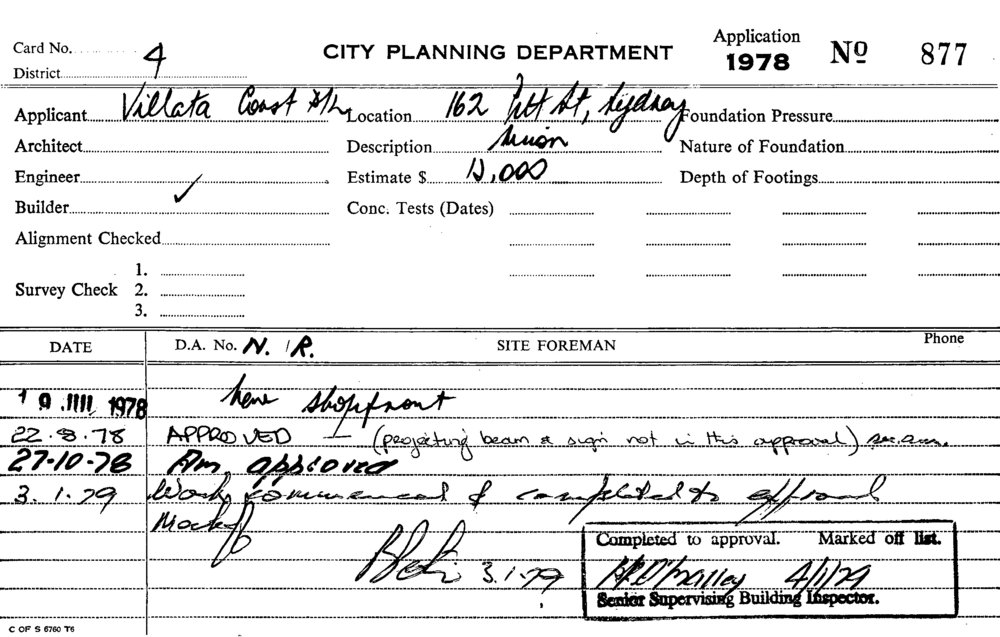 Card No. 4 CITY PLANNING DEPARTMENT Application 1978 Nº 877
District
Applicant Villata Const P/L Location 162 Pitt St, Sydney Foundation Pressure
Architect Description Nature of Foundation
Engineer Estimate $ 12,000 Depth of Footings
Builder ✓ Conc. Tests (Dates)
Alignment Checked
1.
Survey Check 2.
3.
DATE D.A. No. N./R. SITE FOREMAN Phone
19 JUL 1978 New shopfront
22.8.78 APPROVED — (projecting beam & sign not in this approval)
27-10-78 Am. approved
3.1.79 Work commenced & completed to approval
Mark off
3.1.79
Completed to approval. Marked off list.
4/1/79
Senior Supervising Building Inspector.
C OF S 6760 T6